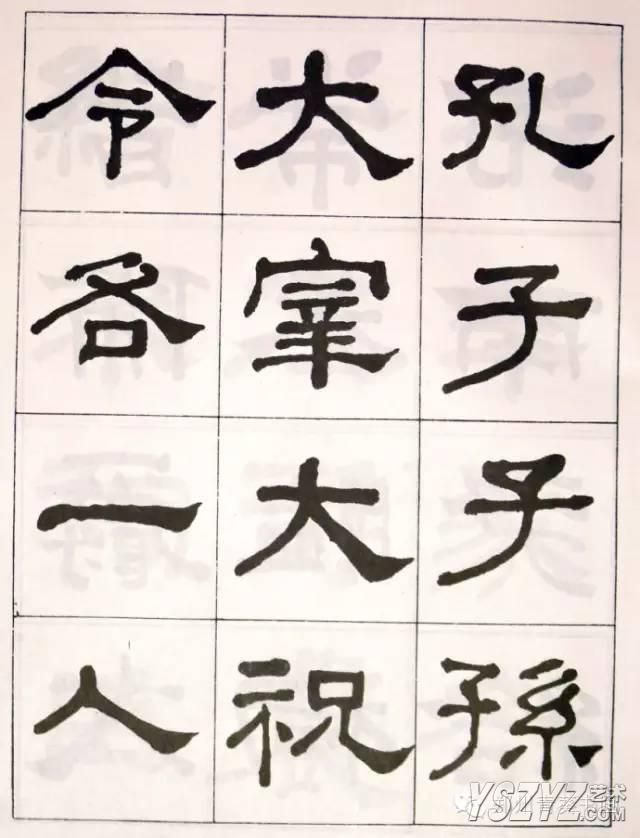 孔子子孫
大宰大祝
令各一人
YSZYZ艺术
.com